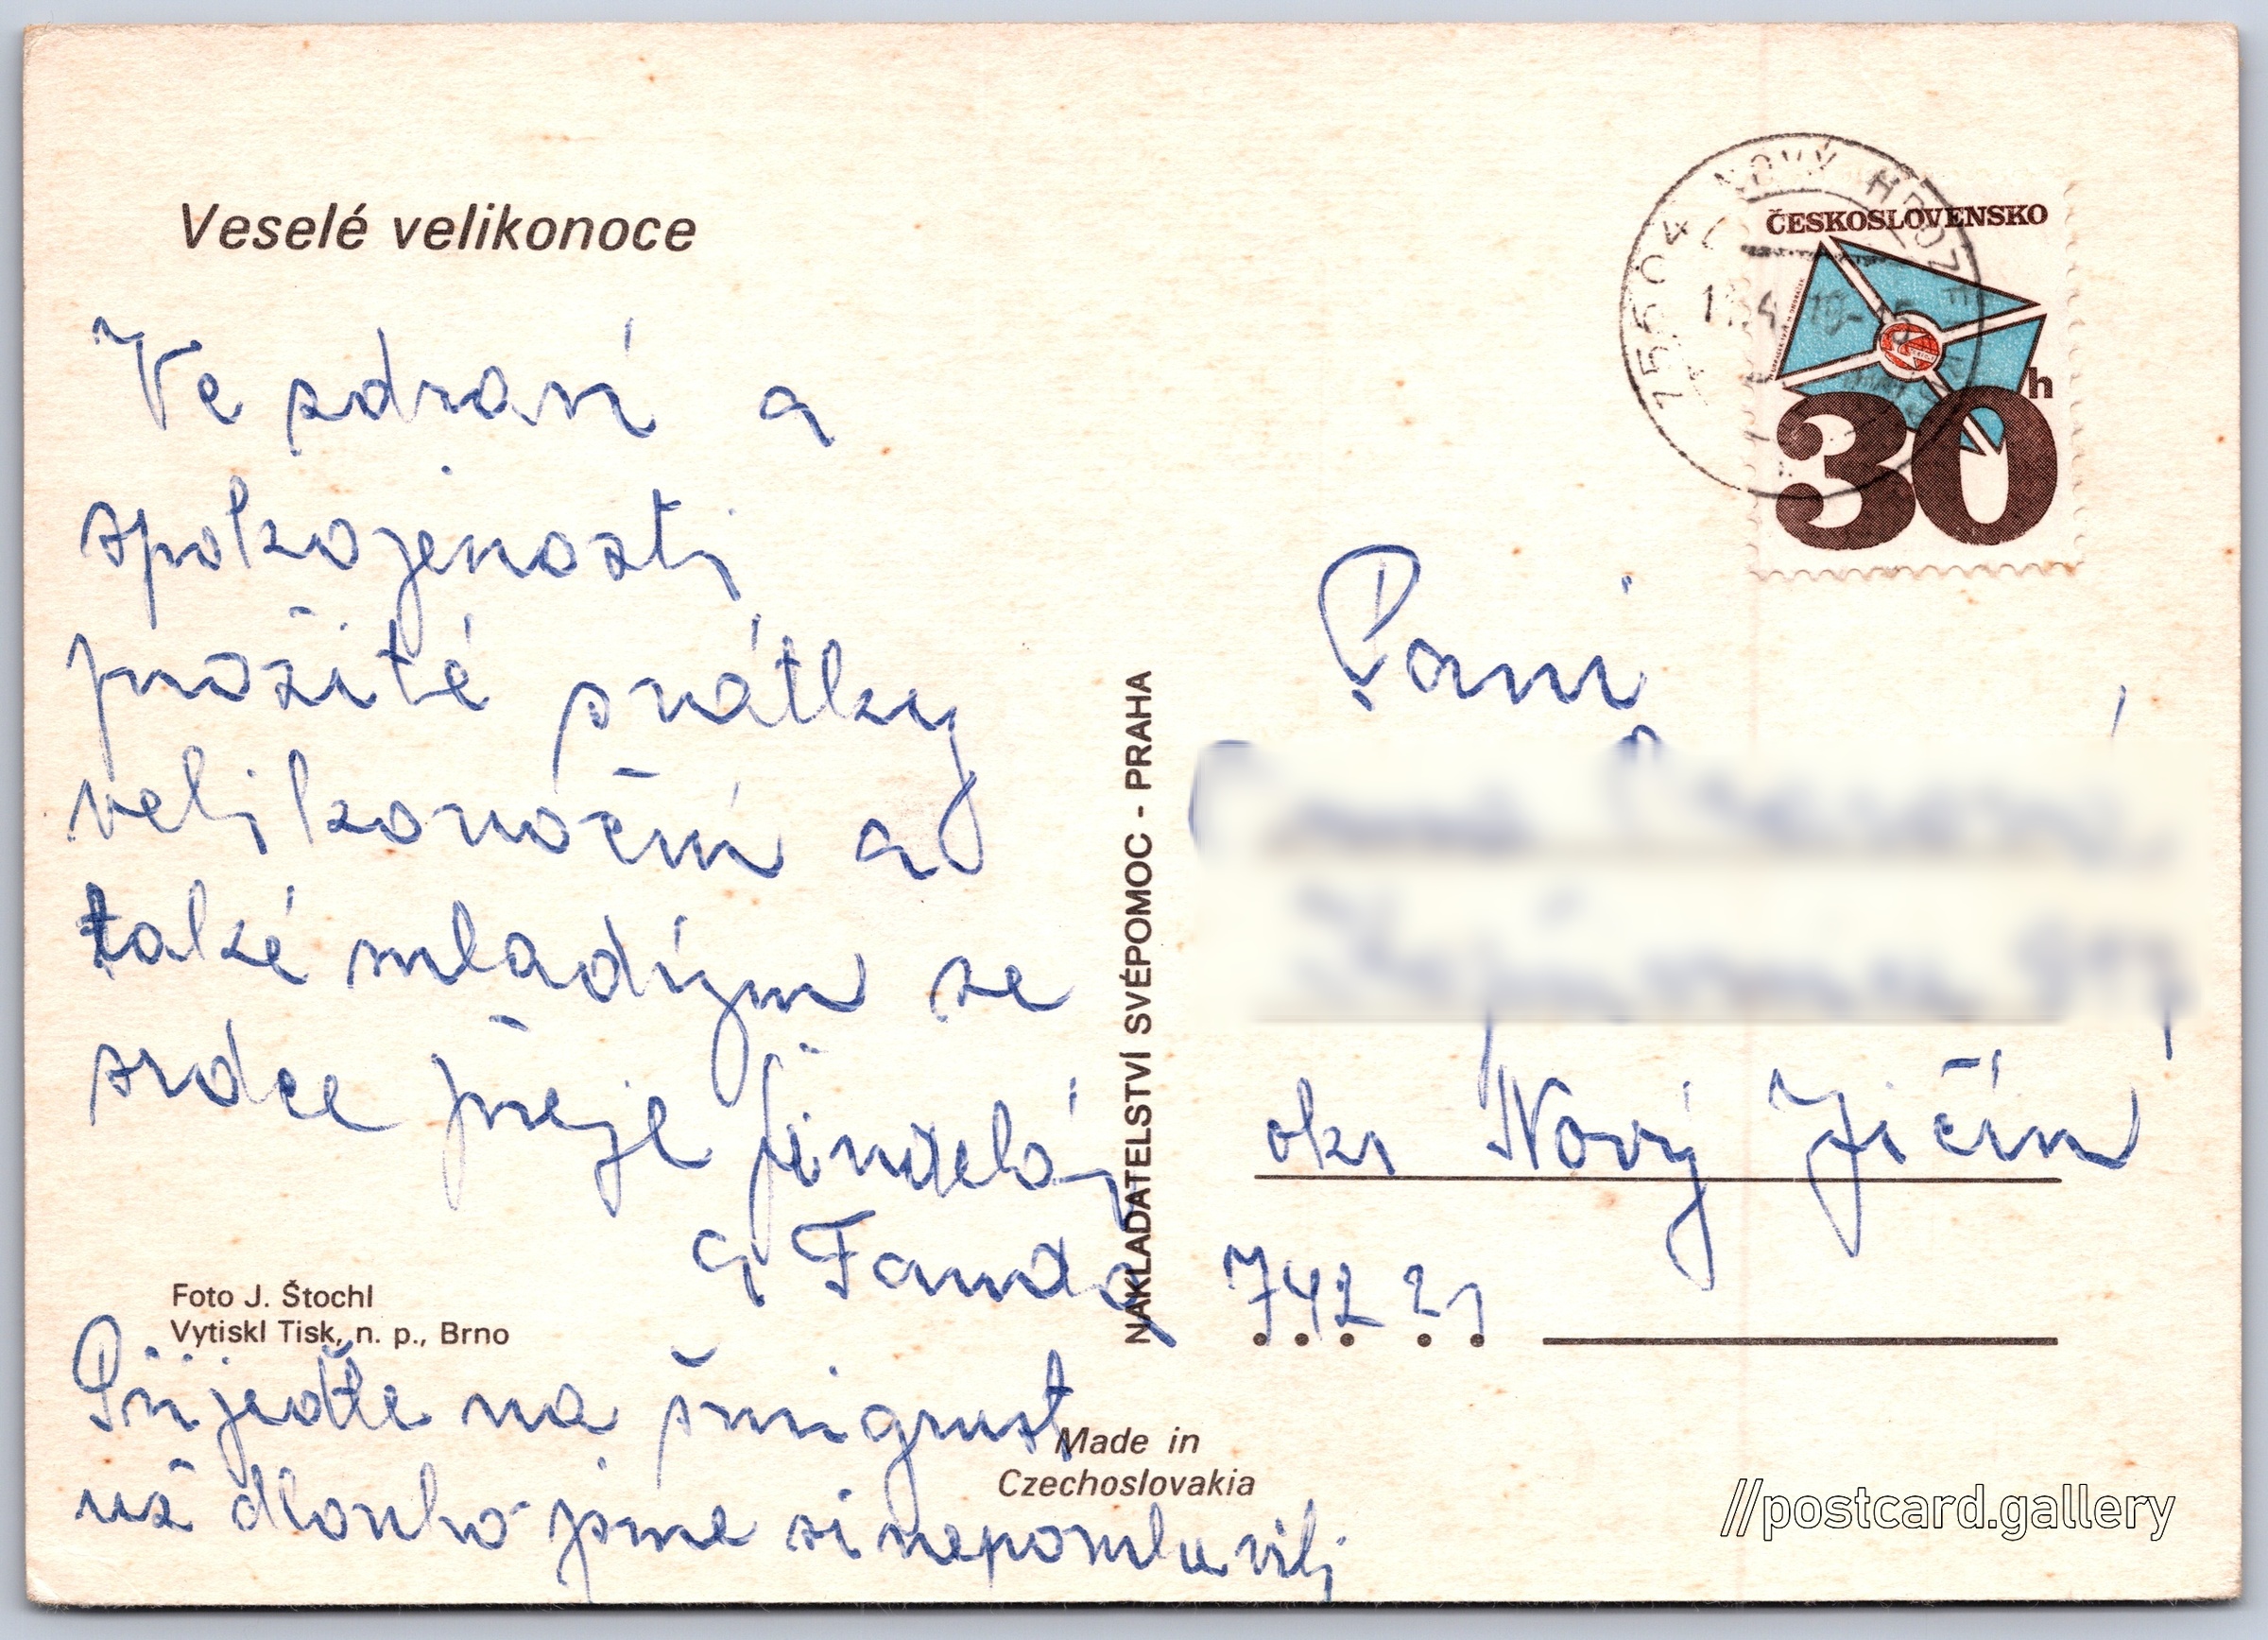 Veselé velikonoce
Ve zdraví a
spokojenosti
prožité svátky
velikonoční a
také mladým ze
srdce přeje
a Fanda
Foto J. Štochl
Vytiskl Tisk, n. p., Brno
Přijeďte na šmigrust
už dlouho jsme si nepomluvili
NAKLADATELSTVÍ SVÉPOMOC - PRAHA
Made in
Czechoslovakia
756 04 NOVÝ
ČESKOSLOVENSKO
30 h
Paní
okr Nový Jičín
742 21
//postcard.gallery